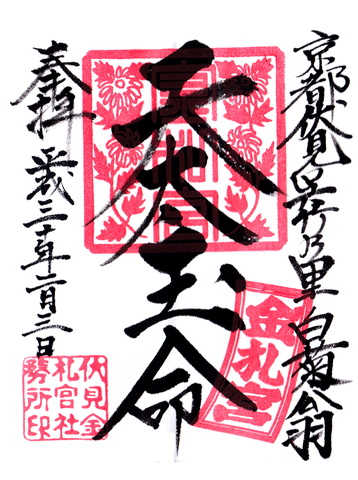 京都伏見呉竹乃里 白菊翁
天太玉命
金札宮
奉拝 平成三十年二月三日
伏見金
札宮社
務所印